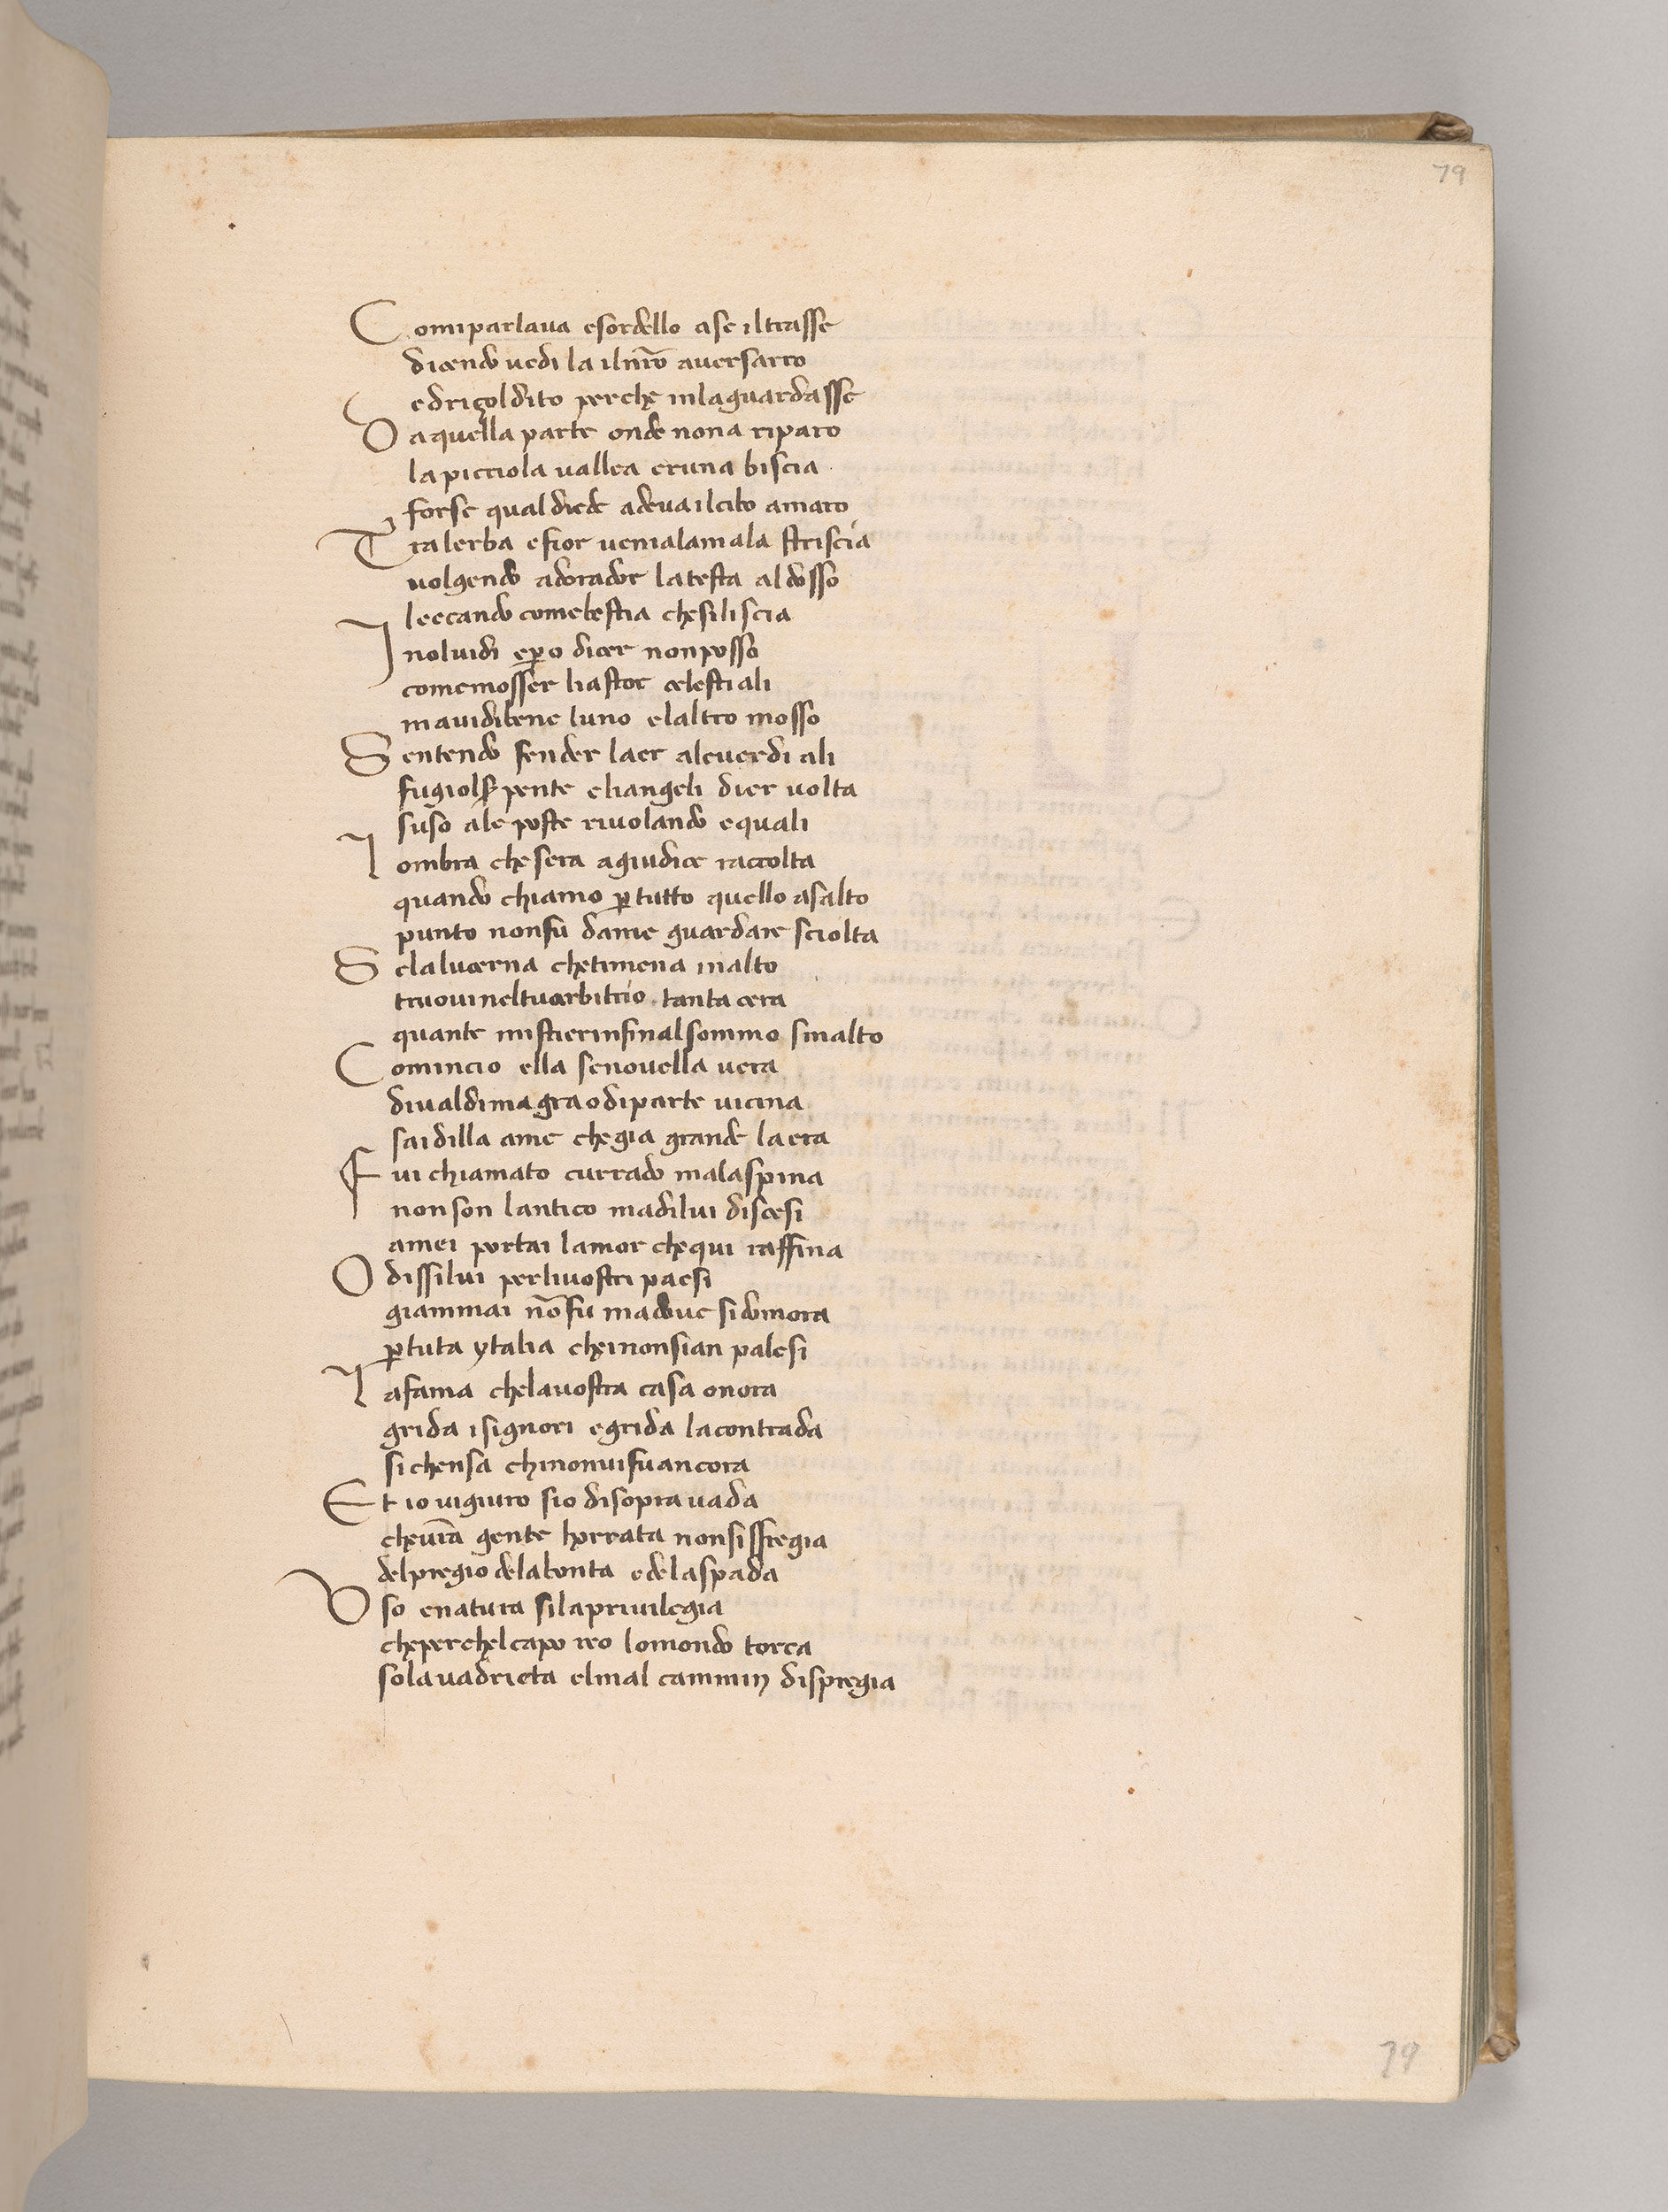 79
Comiparlaua esordello ase iltrasse
dicendo uedi la ilnr̅o auersaro
edriçoldito perche inlaguardasse
Daquella parte onde nona riparo
lapicciola uallea eruna biscia
forse qualdiede adeua ilcibo amaro
Tralerba efior uenialamala striscia
uolgendo adoradore latesta aldosso
leccando comebestia chesiliscia
Inoluidi eꝑo dicer nonposso
comemosser liastor celestiali
mauidibene luno elaltro mosso
Sentendo fender laer aleuerdi ali
fugiolsꝑpente eliangeli dier uolta
suso ale poste riuolando equali
Lombra chesera agiudice raccolta
quando chiamo ꝑtutto quello asalto
punto nonfu dame guardare sciolta
Selalucerna chetimena inalto
truouineltuoarbitrio tanta cera
quante mistierinfinalsommo smalto
Comincio ella senouella uera
diualdimagra odiparte uicina
saidilla ame chegia grande laera
Fui chiamato currado malaspina
nonson lantico madilui discesi
amei portai lamor chequi raffina
O dissilui perliuostri paesi
giammai no̅fu madoue sidimora
ꝑtuta ytalia cheinonsian palesi
Lafama chelauostra casa onora
grida isignori egrida lacontrada
sichensa chinonuifuancora
Et io uigiuro sio disopra uada
cheur̅a gente horrata nonsisfregia
delpregio delaborsa edelaspada
Uso enatura silapriuilegia
cheperchelcapo reo lomondo torca
solauadrieta elmal cammin dispregia
79